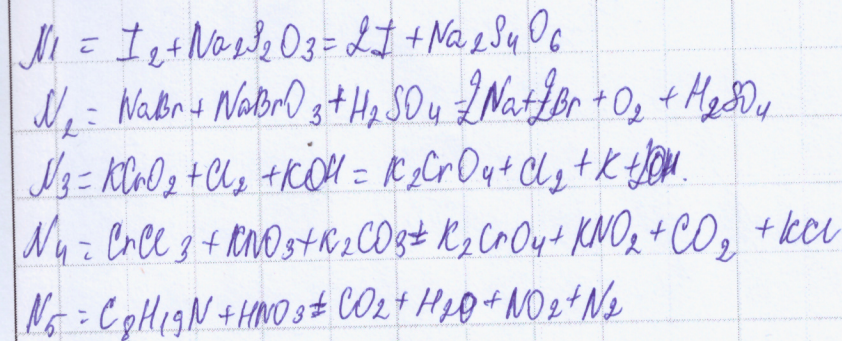 N1 = I2 + Na2S2O3 = 2I + Na2S4O6
N2 = NaBr + NaBrO3 + H2SO4 = 2Na + 2Br + O2 + H2SO4
N3 = KCrO2 + Cl2 + KOH = K2CrO4 + Cl2 + K + OH.
N4 = CrCl3 + KNO3 + K2CO3 = K2CrO4 + KNO2 + CO2 + KCl
N5 = C8H19N + HNO3 = CO2 + H2O + NO2 + N2